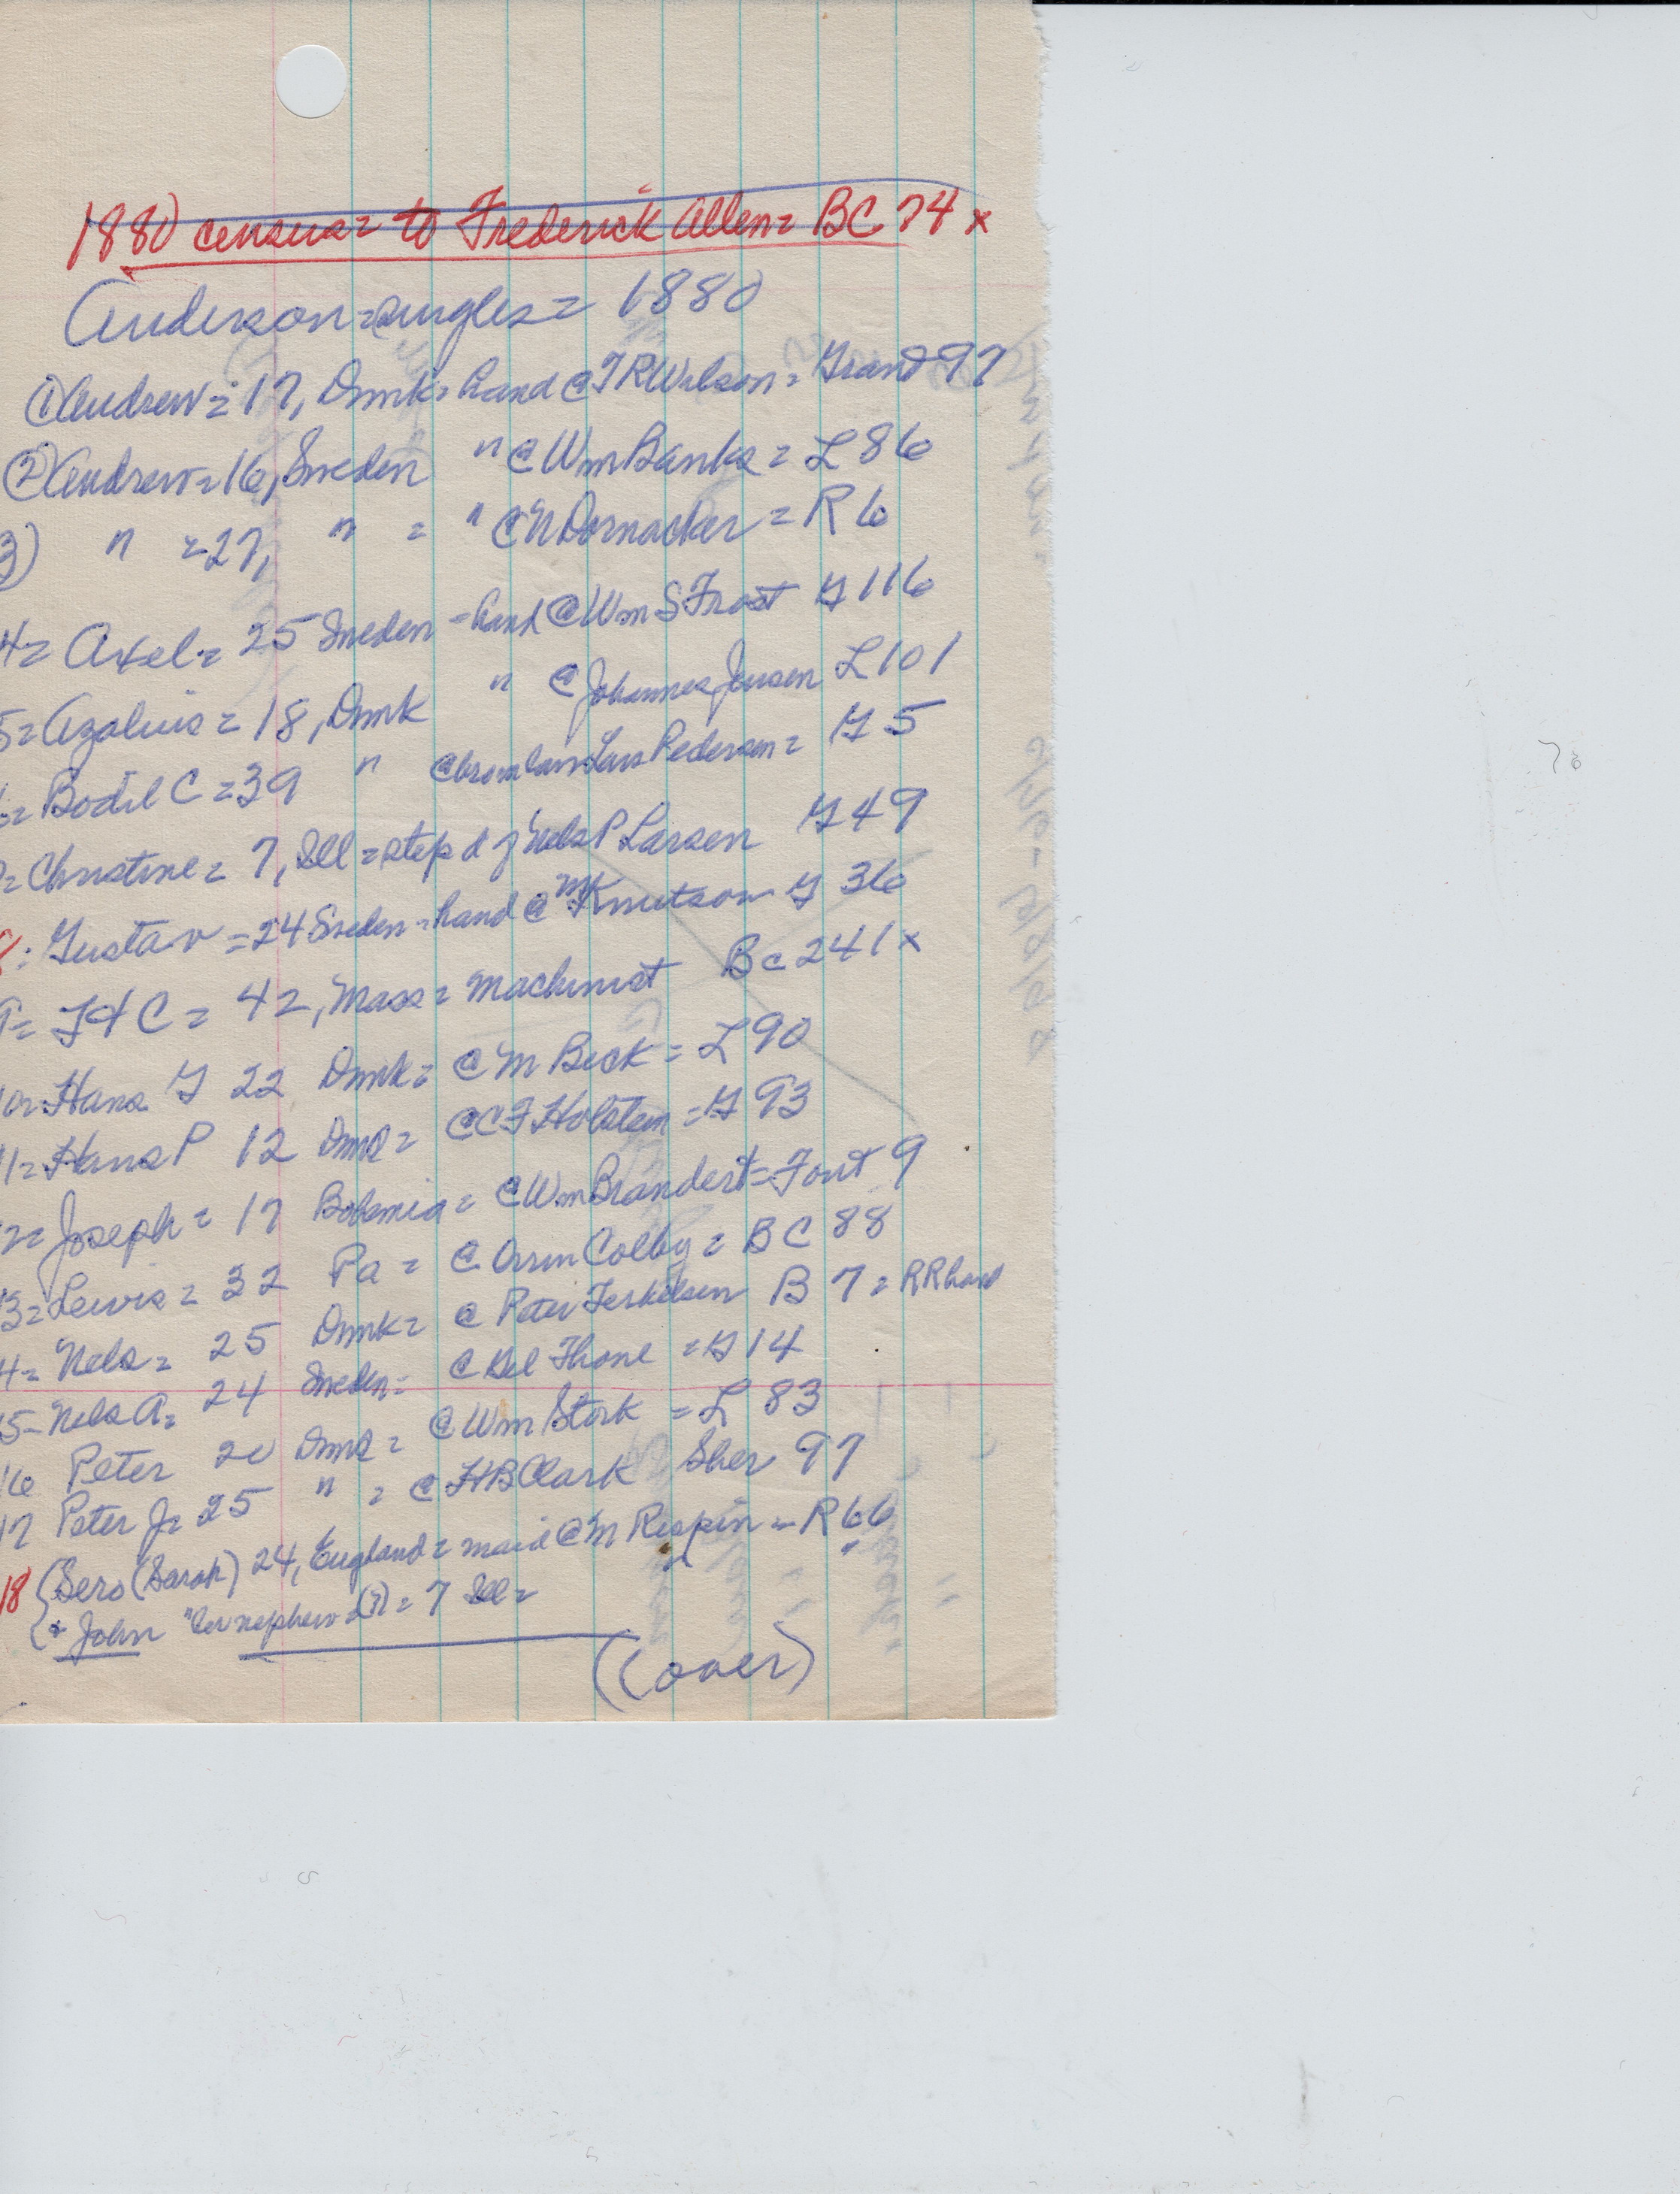 1880 census = to Frederick Allen = BC 74 x
Anderson = singles = 1880
① Andrew = 17, Dmk = hand @ T R Wilson = Grant 97
② Andrew = 16, Sweden " @ Wm Banks = L 86
3) " = 27, " = " @ N Dornacker = R 6
4 = Axel = 25 Sweden = hand @ Wm S Frost G 116
5 = Azalius = 18, Dmk " @ Johannes Jensen L 101
= Bodil C = 39 " @ Lars Pedersen = G 5
= Christine = 7, Ill = step d of Nels P Larsen G 49
8: Gustav = 24 Sweden = hand @ M Knutson G 36
9 = C = 42, Mass = machinist Bc 241 x
10 = Hans G 22 Dmk = @ M Beck = L 90
11 = Hans P 12 Dmk = @ C F Holstein = G 93
12 = Joseph = 17 Bohemia = @ Wm Brandert = Font 9
13 = Lewis = 32 Pa = @ Orrin Colby = BC 88
4 = Nels = 25 Dmk = @ Peter Terkelsen B 7 = RR hand
5 - Nels A = 24 Sweden = @ Thone = G 14
16 Peter 20 Dmk = @ Wm Stork = L 83
17 Peter J = 25 " = @ H B Clark Sher 97
18 { Sero (Sarah) 24, England = maid @ M Respin = R 66
+ John " her nephew = (?) = 7 Ill =
(over)